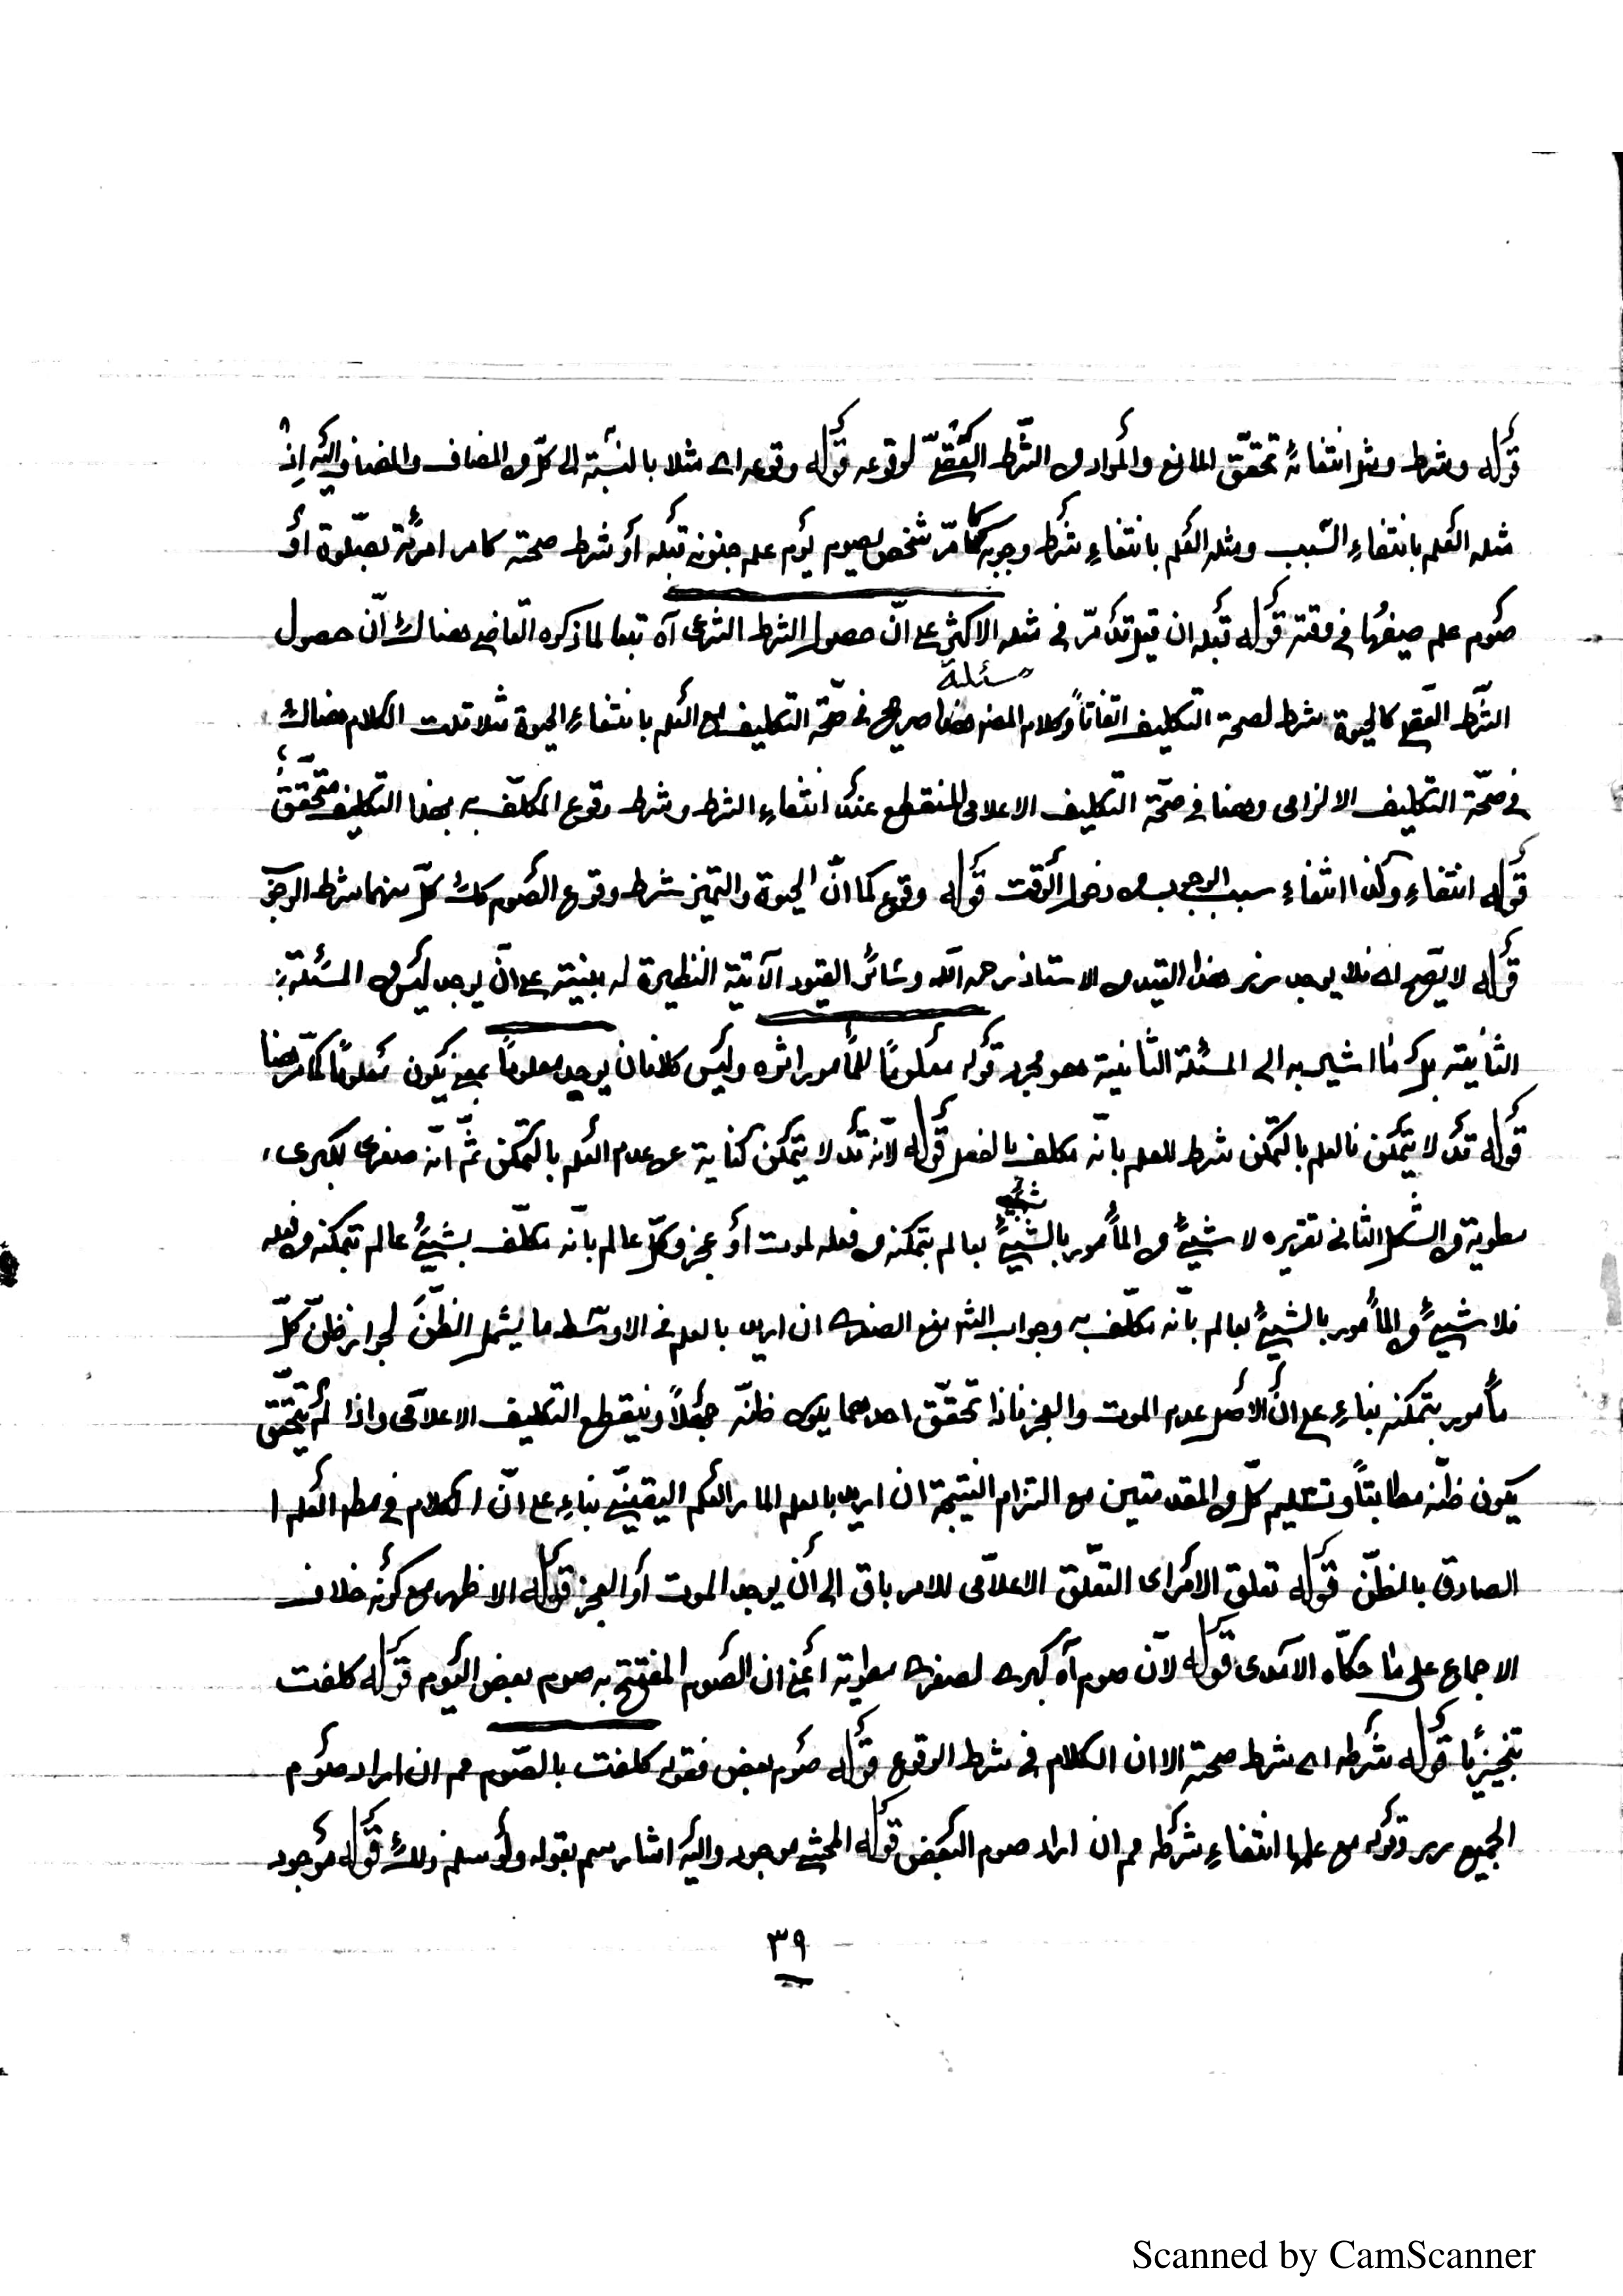 قوله وشرط ومثل انتفائه تحقق المانع والمراد من الشرط العقلي لوقوعه قوله وقوعه اى مثلا بالنسبة الى كل من المضاف والمضاف إليه إذ
مثله العلم بانتفاء السبب ومثله العلم بانتفاء شرط وجوبه كامر شخص بصيوم يوم علم جنونه قبله أو شرط صحته كامر امرأة بصلوة أو
صوم علم حيضها في وقته قوله قبله ان قيل قد مر في مسئلة الاكثر على ان حصول الشرط الشرعى آه تبعا لما ذكره القاضي هناك ان حصول
الشرط العقلي كالحيوة شرط لصحة التكليف اتفاقاً وكلام المصنف هنا صريح في صحة التكليف مع العلم بانتفاء الحيوة مثلا قلت الكلام هناك
في صحة التكليف الالزامى وهنا في صحة التكليف الاعلامى المنقطع عند انتفاء الشرط وشرط وقوع المكلف به بهذا التكليف متحقق
قوله انتفاء وكذا انتفاء سبب الوجوب من دخول الوقت قوله وقوع كما ان الحيوة والتميز شرط وقوع الصوم كذلك كل منهما شرط الوجوب
قوله لا يصح اى فلا يوجد زبر هذا القيد من الاستاذ رحمه الله وسائر القيود الآتية النظيرة له مبنية على ان يوجد ليس من المسئلة
الثانية بل ما اشير به الى المسئلة الثانية هو مجرد قوله معلوماً للمأمور اثره وليس كلا فان يوجد معلوماً بمعنى يكون معلوماً كما مر هنا
قوله قد لا يتمكن فالعلم بالتمكن شرط للعلم بانه مكلف بالفعل قوله لانه قد لا يتمكن كناية عن عدم العلم بالتمكن ثم انه صغرى لكبرى
مطوية من الشكل الثانى تقريره لا شيئ من المأمور بالشيئ بعالم بتمكنه من فعله لموت أو عجز وكل عالم بانه مكلف بشيئ عالم بتمكنه من فعله
فلا شيئ من المأمور بالشيئ بعالم بانه مكلف به وجواب الشـ منع الصغرى ان اريد بالعلم في الاوسط ما يشمل الظن لجواز ظن كل
مأمور بتمكنه بناء على ان الأصل عدم الموت والعجز فاذا تحقق احدهما يكون ظنه جهلاً وينقطع التكليف الاعلامى واذا لم يتحقق
يكون ظنه مطابقاً وتسليم كل من المقدمتين مع التزام النتيجة ان اريد بالعلم المار العلم اليقيني بناء على ان الكلام في مطلق العلم ا
الصادق بالظن قوله تعلق الأمر اى التعلق الاعلامى للامر باق الى أن يوجد الموت أو العجز قوله الاظهر مع كونه خلاف
الاجماع على ما حكاه الآمدى قوله لان صوم آه كبرى لصغرى مطوية اعنى ان الصوم المفتتح به صوم بعض اليوم قوله كلفت
تنجيزيا قوله شرطه اى شرط صحته الا ان الكلام في شرط الوقوع قوله صوم بعض فقوله كلفت بالصوم مم ان اراد صوم
الجميع زبر وقوله مع علمها انتفاء شرطه مم ان اراد صوم البعض قوله المحشى موجود واليه اشار سم بقوله ولو سلم ذلك قوله موجود
٣٩
Scanned by CamScanner